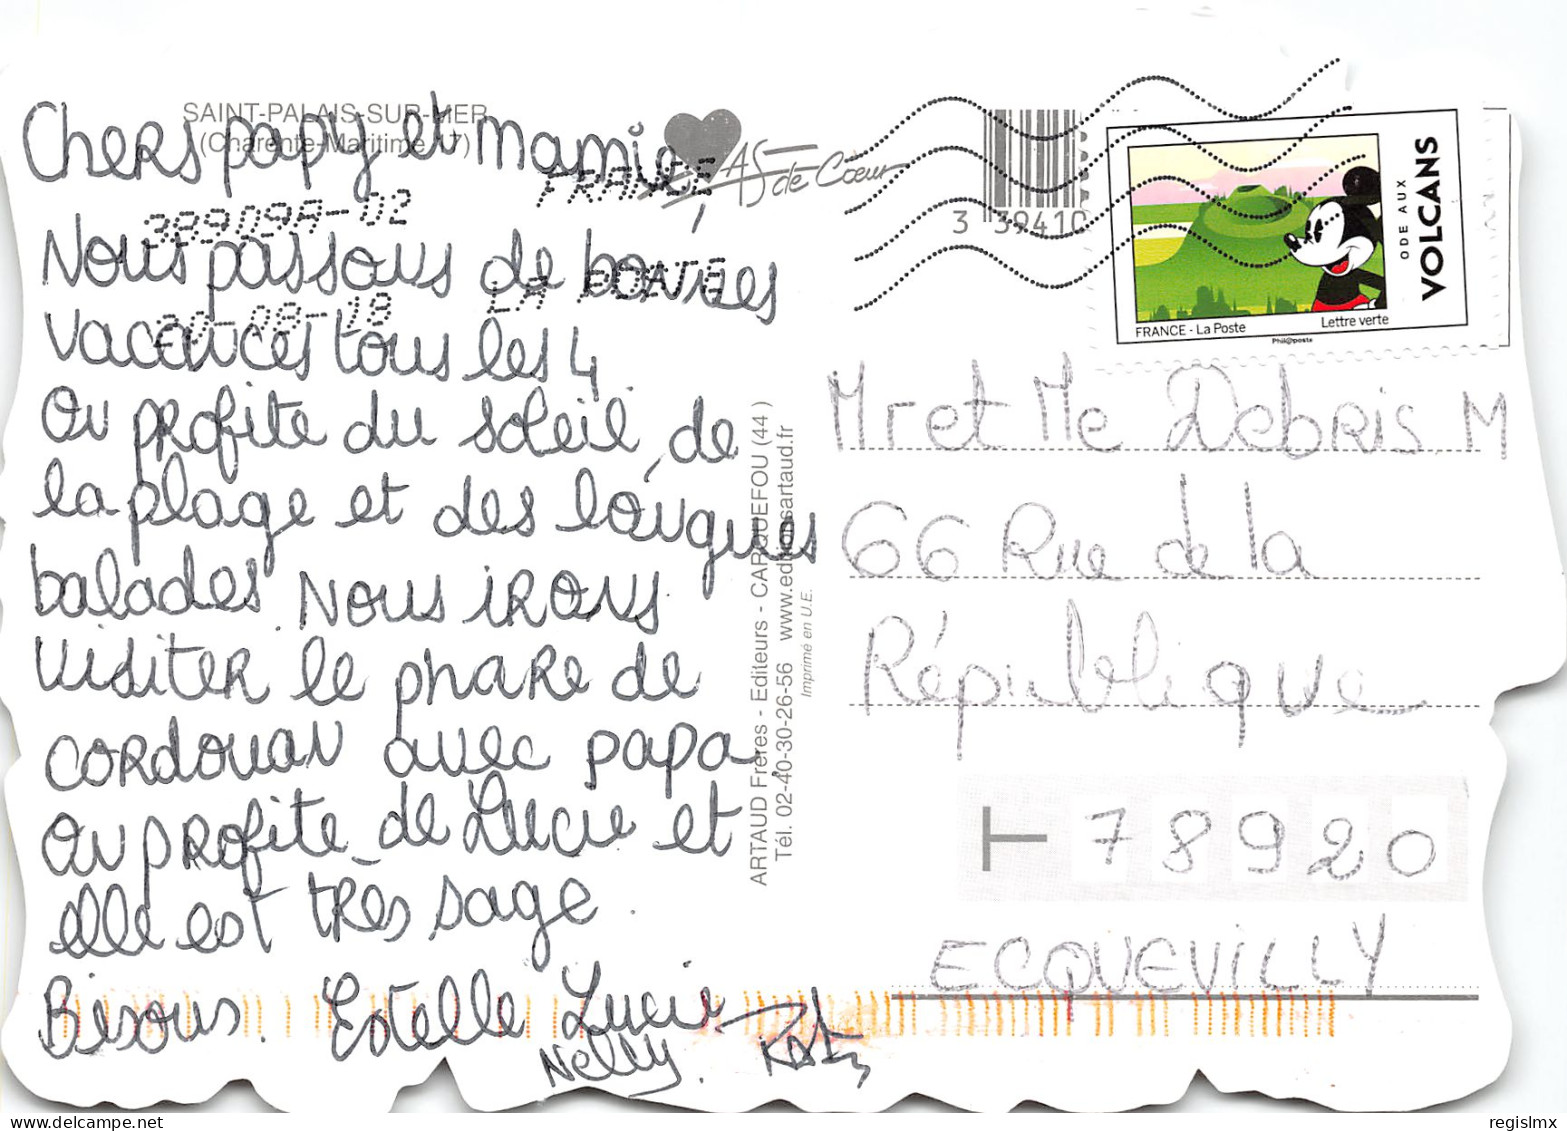 SAINT-PALAIS-SUR-MER
(Charente-Maritime 17)
Chers papy et mamie,
Nous passons de bonnes
vacances tous les 4
On profite du soleil, de
la plage et des longues
balades. Nous irons
visiter le phare de
cordouan avec papa.
On profite de Lucie et
elle est très sage.
Bisous. Estelle Lucie
Nelly
FRANCE
38909A-02
LA POSTE
-08-18
As de Cœur
3 39410
ODE AUX
VOLCANS
FRANCE - La Poste
Lettre verte
Phil@poste
ARTAUD Frères - Editeurs - CARQUEFOU (44)
Tél. 02-40-30-26-56 www.editionsartaud.fr
Imprimé en U.E.
Mr et Me Debris M
66 Rue de la
République
78920
ECQUEVILLY
regislmx